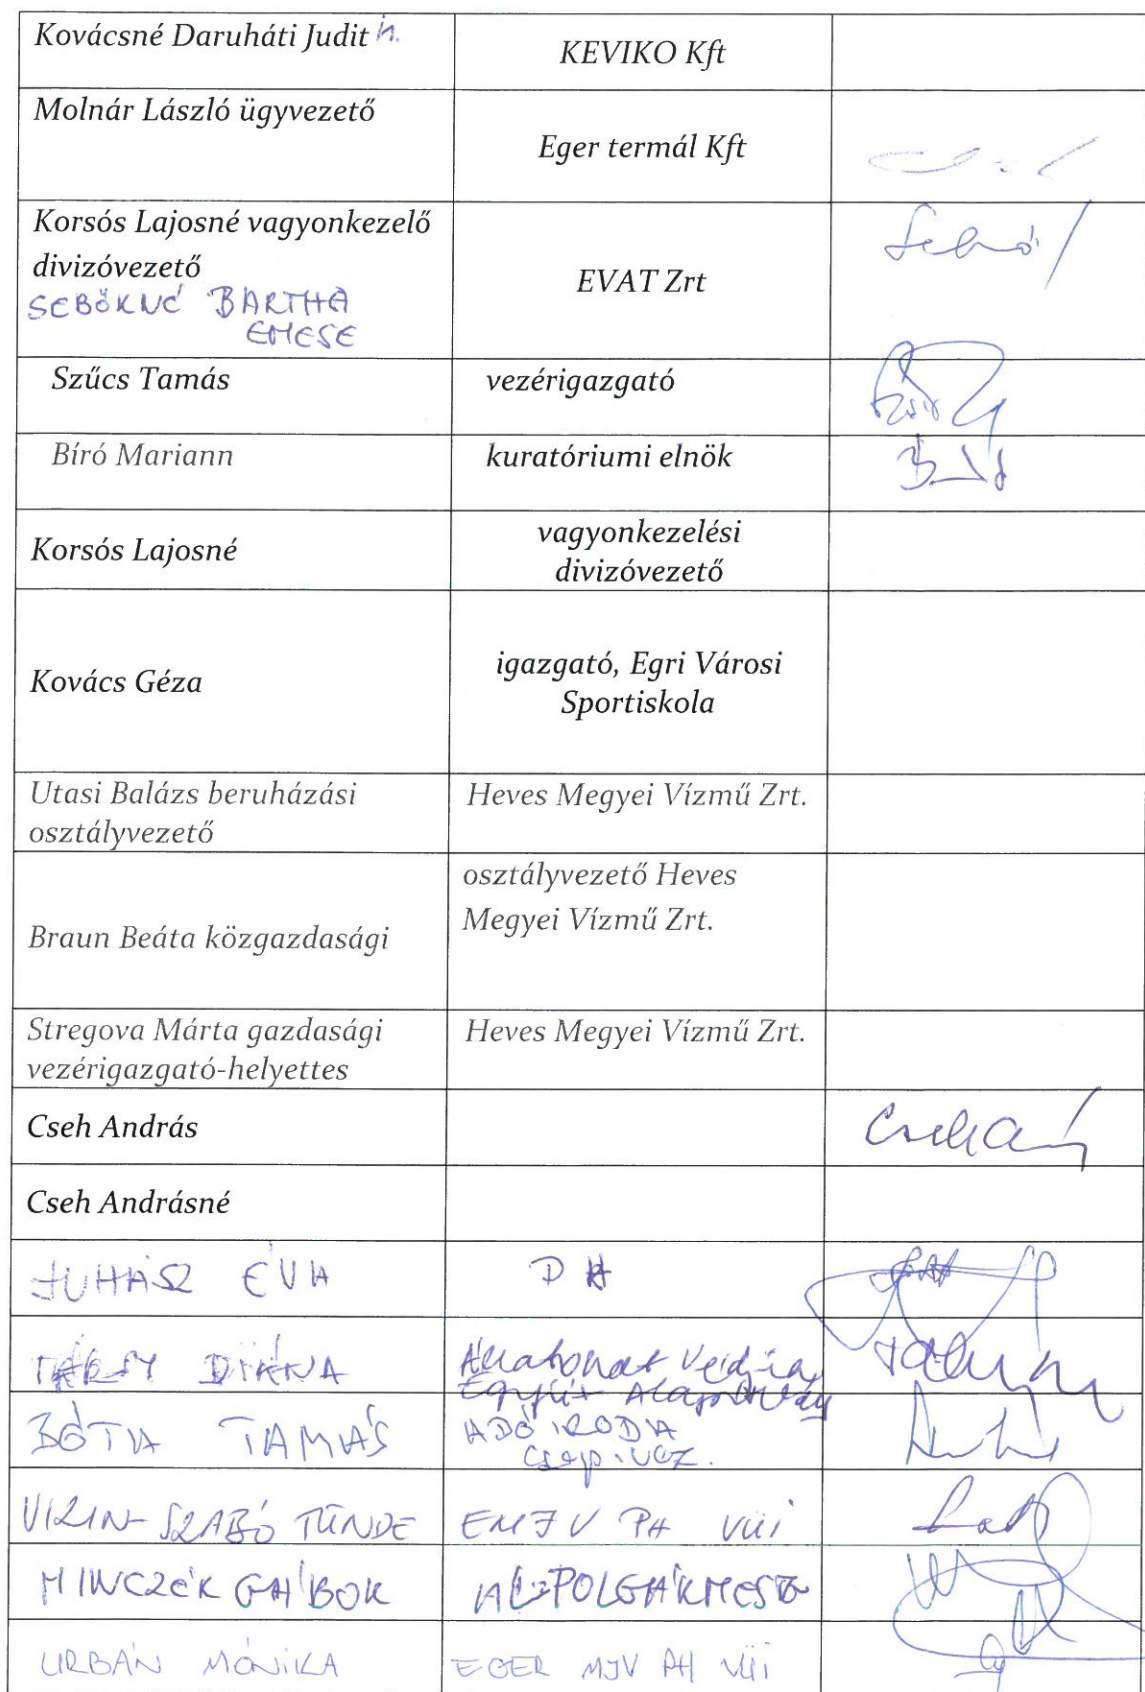 Kovácsné Daruháti Judit
KEVIKO Kft
Molnár László ügyvezető
Eger termál Kft
Korsós Lajosné vagyonkezelő
divizóvezető
SEBŐKNÉ BARTHA
EMESE
EVAT Zrt
Szűcs Tamás
vezérigazgató
Bíró Mariann
kuratóriumi elnök
Korsós Lajosné
vagyonkezelési
divizóvezető
Kovács Géza
igazgató, Egri Városi
Sportiskola
Utasi Balázs beruházási
osztályvezető
Heves Megyei Vízmű Zrt.
Braun Beáta közgazdasági
osztályvezető Heves
Megyei Vízmű Zrt.
Stregova Márta gazdasági
vezérigazgató-helyettes
Heves Megyei Vízmű Zrt.
Cseh András
Cseh Andrásné
JUHÁSZ ÉVA
TARSY DIÁNA
BÓTA TAMÁS
ADÓ IRODA
CSOP.VEZ.
VIZIN-SZABÓ TÜNDE
EMJV PH VÜI
MINCZÉR GÁBOR
ALPOLGÁRMESTER
URBÁN MÓNIKA
EGER MJV PH VÜI